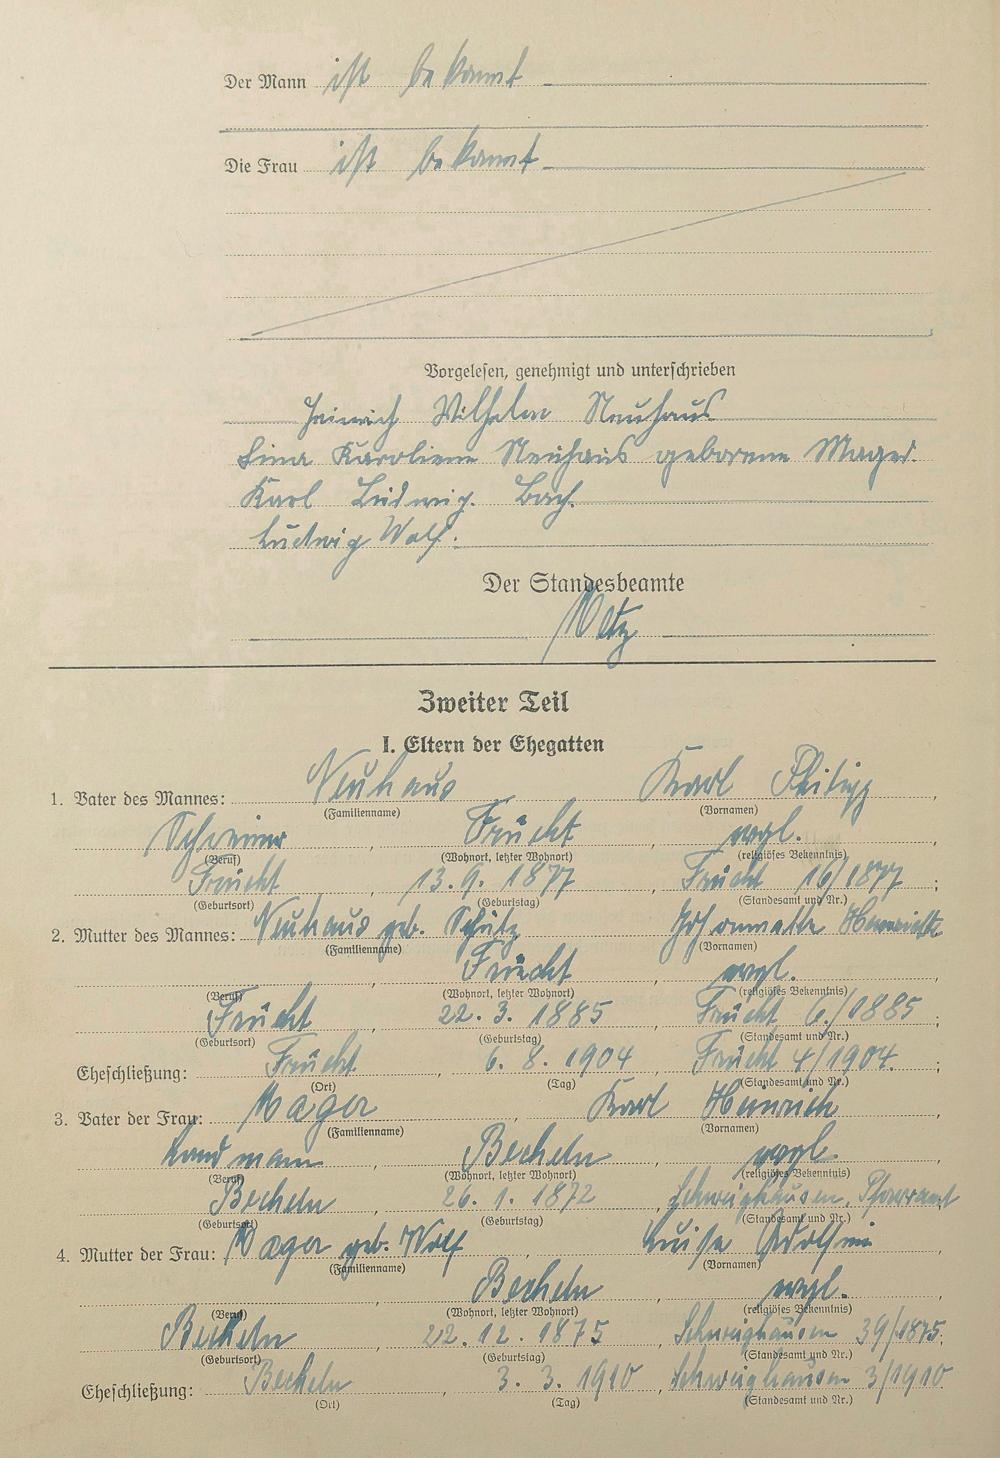 Der Mann ist bekannt
Die Frau ist bekannt
Vorgelesen, genehmigt und unterschrieben
Heinrich Wilhelm Neuhaus
Lina Karoliene Neuhaus geborene Mager.
Karl Ludwig. Bach.
Ludwig Wolf.
Der Standesbeamte
Metz
Zweiter Teil
I. Eltern der Ehegatten
1. Vater des Mannes: Neuhaus Karl Philipp,
(Familienname) (Vornamen)
Schreiner, Frücht, evgl.
(Beruf) (Wohnort, letzter Wohnort) (religiöses Bekenntnis)
Frücht, 13. 9. 1877, Frücht 16/1877;
(Geburtsort) (Geburtstag) (Standesamt und Nr.)
2. Mutter des Mannes: Neuhaus geb. Schütz Johannette Henriette
(Familienname) (Vornamen)
Frücht, evgl.
(Beruf) (Wohnort, letzter Wohnort) (religiöses Bekenntnis)
Frücht, 22. 3. 1885, Frücht 6./1885;
(Geburtsort) (Geburtstag) (Standesamt und Nr.)
Eheschließung: Frücht, 6. 8. 1904, Frücht 4/1904.;
(Ort) (Tag) (Standesamt und Nr.)
3. Vater der Frau: Mager, Karl Heinrich,
(Familienname) (Vornamen)
Landmann, Becheln, evgl.
(Beruf) (Wohnort, letzter Wohnort) (religiöses Bekenntnis)
Becheln, 26. 1. 1872, Schweighausen, Pfarramt
(Geburtsort) (Geburtstag) (Standesamt und Nr.)
4. Mutter der Frau: Mager geb. Wolf, Luise Adolfine,
(Familienname) (Vornamen)
Becheln, evgl.
(Beruf) (Wohnort, letzter Wohnort) (religiöses Bekenntnis)
Becheln, 22. 12. 1875, Schweighausen 39/1875.
(Geburtsort) (Geburtstag) (Standesamt und Nr.)
Eheschließung: Becheln, 3. 3. 1910, Schweighausen 3/1910
(Ort) (Tag) (Standesamt und Nr.)